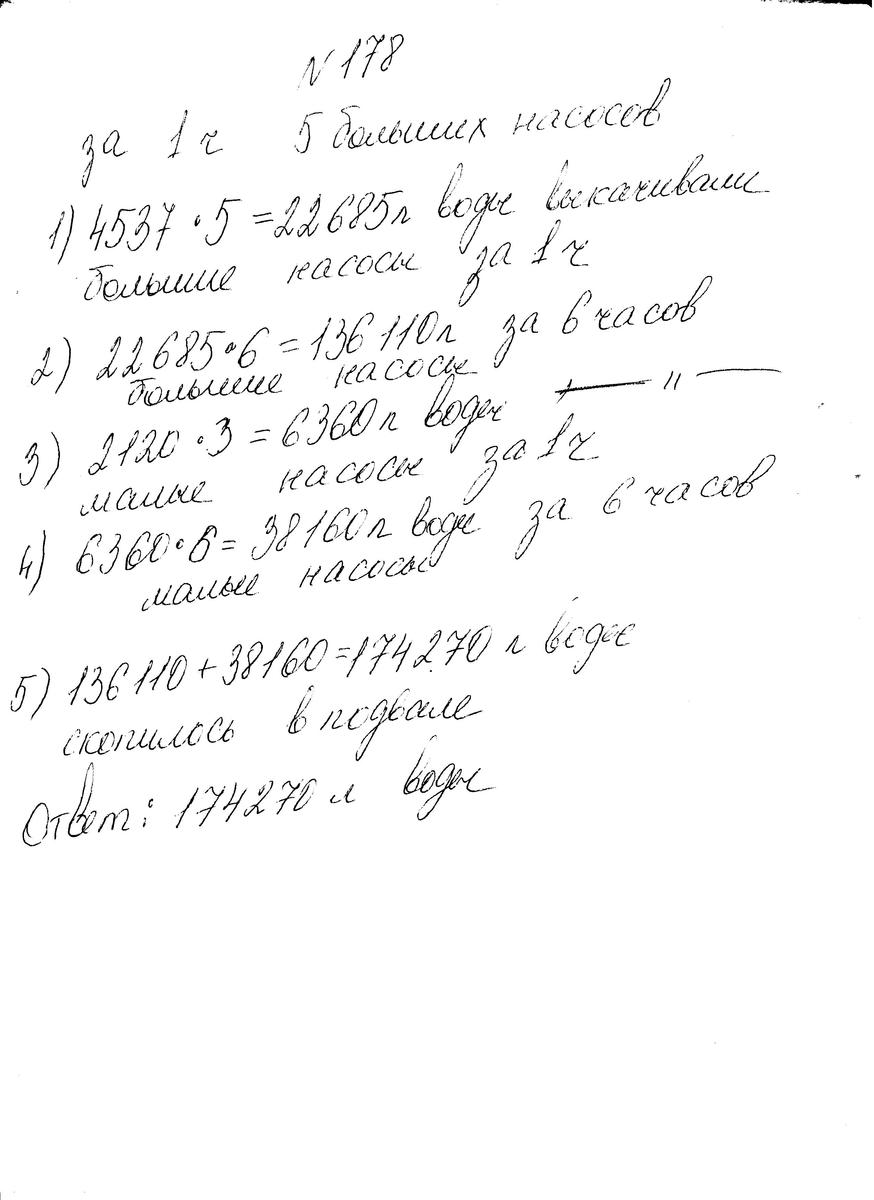 N 178
за 1 ч 5 больших насосов
1) 4537 · 5 = 22685 л воды выкачивали
большие насосы за 1 ч
2) 22685 · 6 = 136110 л за 6 часов
большие насосы
3) 2120 · 3 = 6360 л воды — " —
малые насосы за 1 ч
4) 6360 · 6 = 38160 л воды за 6 часов
малые насосы
5) 136110 + 38160 = 174270 л воды
скопилось в подвале
Ответ: 174270 л воды